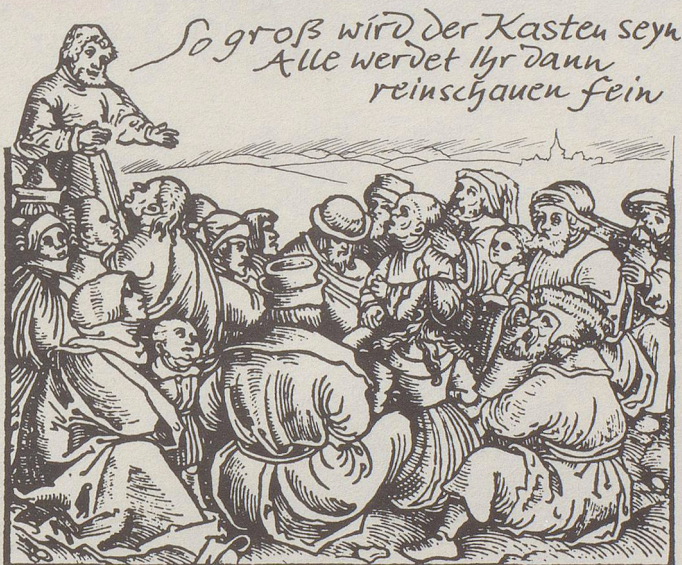 So groß wird der Kasten seyn
Alle werdet Ihr dann
reinschauen fein